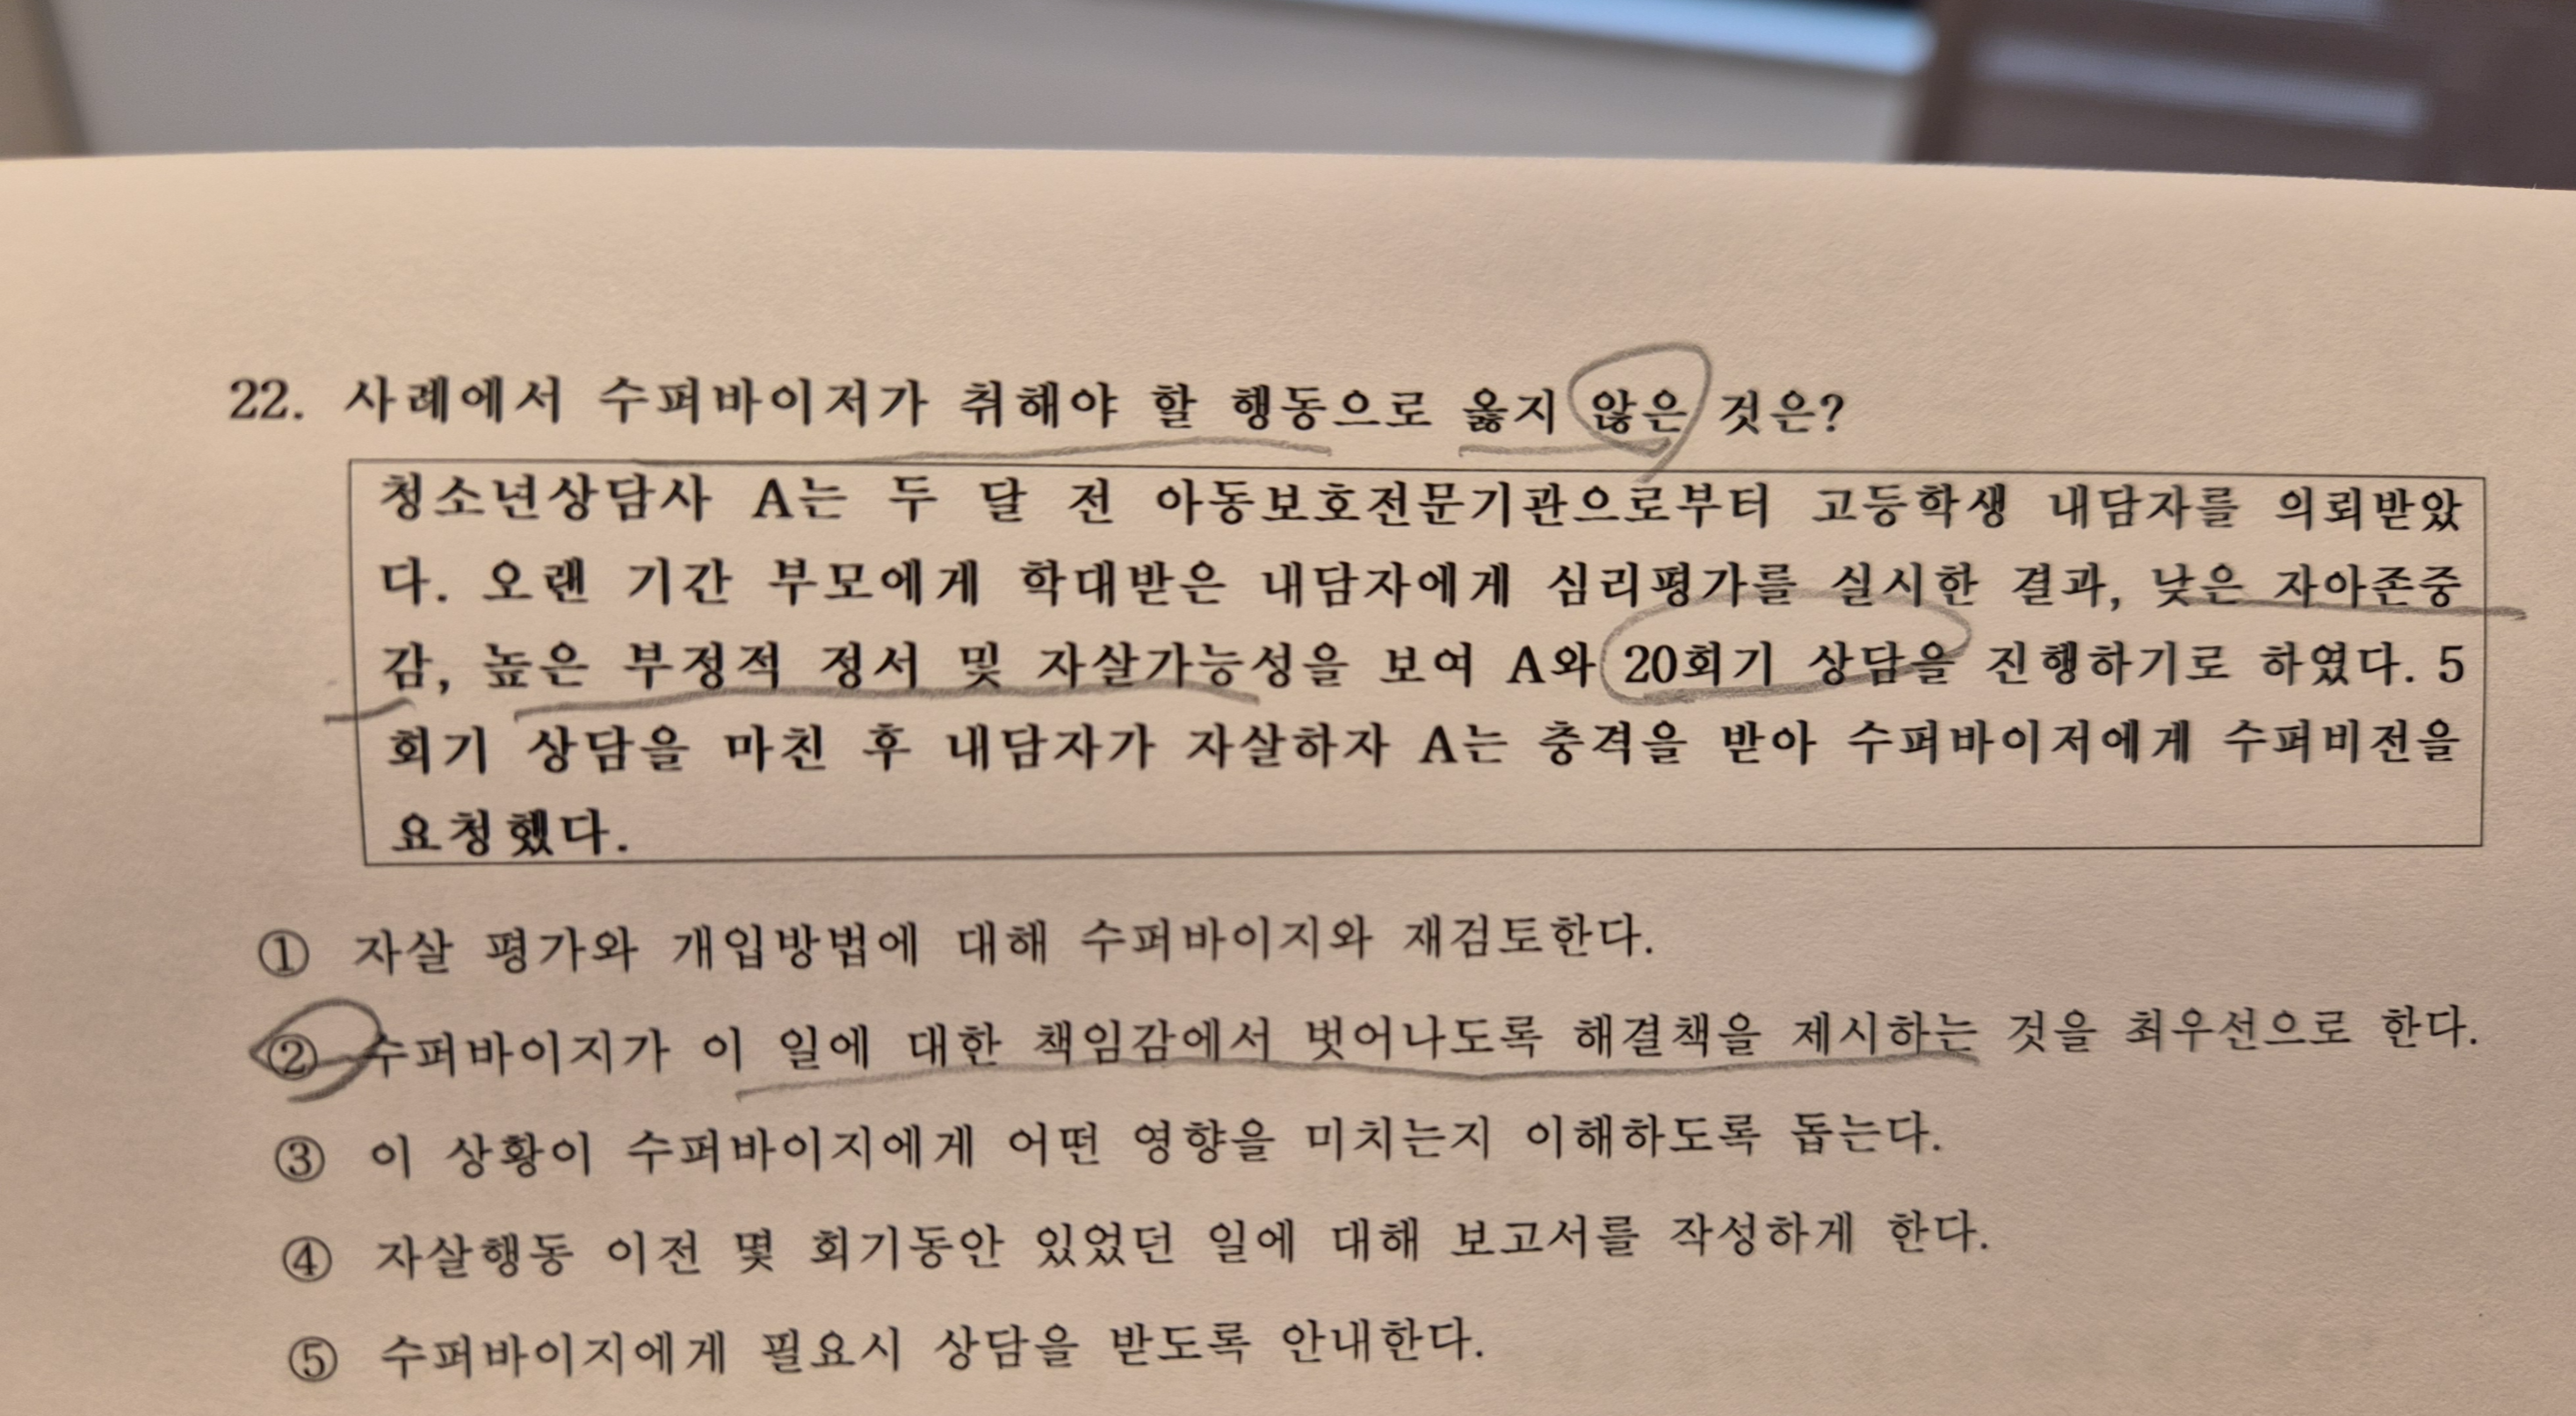 22. 사례에서 수퍼바이저가 취해야 할 행동으로 옳지 않은 것은?
청소년상담사 A는 두 달 전 아동보호전문기관으로부터 고등학생 내담자를 의뢰받았
다. 오랜 기간 부모에게 학대받은 내담자에게 심리평가를 실시한 결과, 낮은 자아존중
감, 높은 부정적 정서 및 자살가능성을 보여 A와 20회기 상담을 진행하기로 하였다. 5
회기 상담을 마친 후 내담자가 자살하자 A는 충격을 받아 수퍼바이저에게 수퍼비전을
요청했다.
① 자살 평가와 개입방법에 대해 수퍼바이지와 재검토한다.
② 수퍼바이지가 이 일에 대한 책임감에서 벗어나도록 해결책을 제시하는 것을 최우선으로 한다.
③ 이 상황이 수퍼바이지에게 어떤 영향을 미치는지 이해하도록 돕는다.
④ 자살행동 이전 몇 회기동안 있었던 일에 대해 보고서를 작성하게 한다.
⑤ 수퍼바이지에게 필요시 상담을 받도록 안내한다.